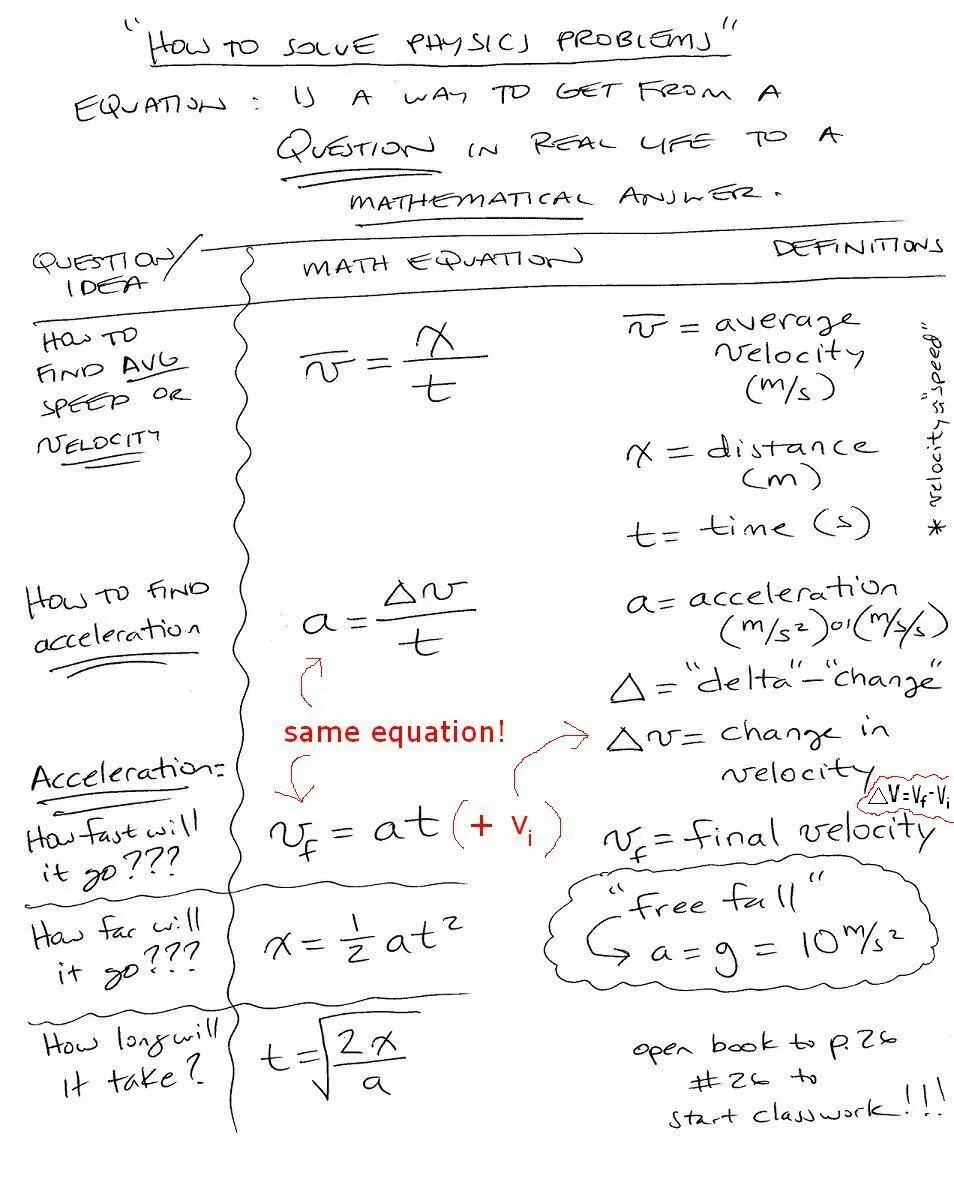 "HOW TO SOLVE PHYSICS PROBLEMS"
EQUATION: IS A WAY TO GET FROM A
QUESTION IN REAL LIFE TO A
MATHEMATICAL ANSWER.
QUESTION/
IDEA
MATH EQUATION
DEFINITIONS
HOW TO
FIND AVG
SPEED OR
VELOCITY
v̅ = x/t
v̅ = average
velocity
(m/s)
x = distance
(m)
t = time (s)
* velocity ≈ "speed"
HOW TO FIND
acceleration
a = Δv/t
a = acceleration
(m/s²) or (m/s/s)
Δ = "delta" - "change"
Δv = change in
velocity
ΔV=Vf-Vi
same equation!
Acceleration:
How fast will
it go???
vf = at (+ vi)
vf = final velocity
How far will
it go???
x = 1/2 at²
"free fall"
a = g = 10 m/s²
How long will
it take?
t = √(2x/a)
open book to p.26
#26 to
start classwork!!!